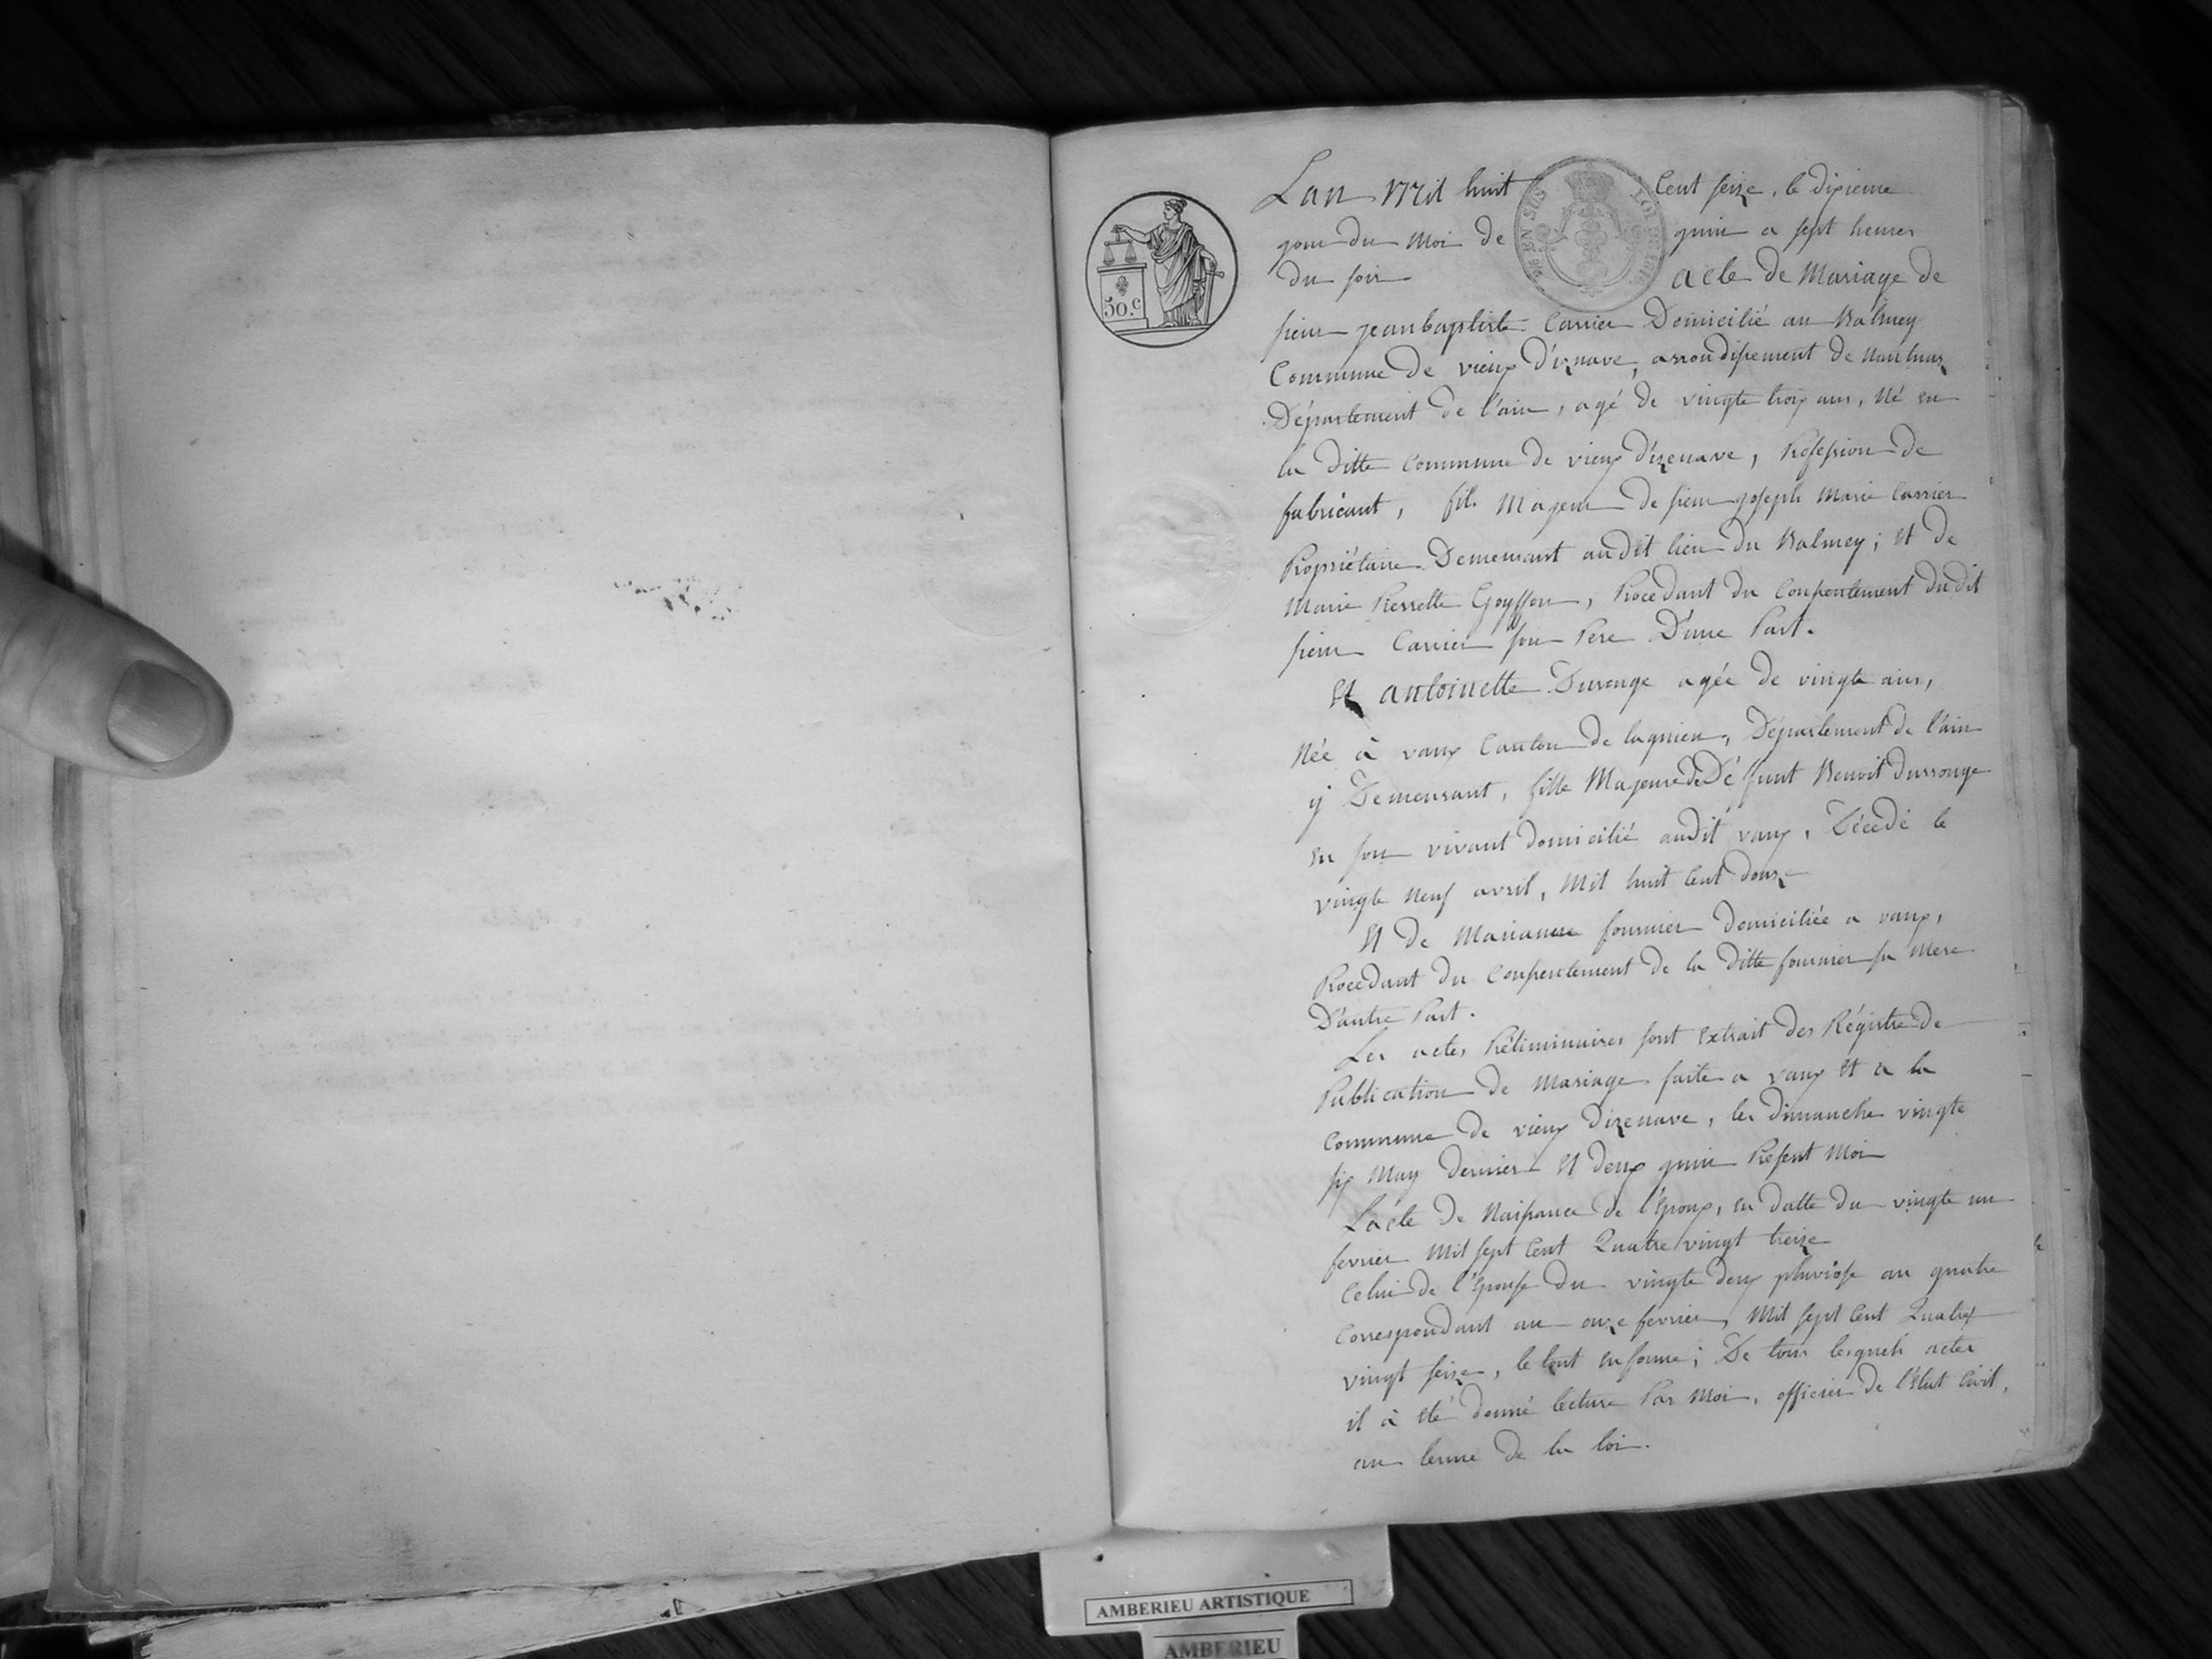 Lan Mil huit Cent seize, le dixieme
jour du Moi de juin a sept heures
du soir acte de Mariage de
sieur jean baptiste Carrier Domicilié au Balmey
Commune de vieux d'iznave, arrondissement de Nantuas
Département de l'ain, agé de vingte troix ans, Né en
la ditte Commune de vieux d'izenave, Profession de
fabricant, fils Majeur de sieur joseph Marie Carrier
Propriétaire Demeurant audit lieu du Balmey; Et de
Marie Pierrette Goyffon, Procédant du Consentement dudit
sieur Carrier son Pere D'une Part.
Et antoinette Durouge agée de vingte ans,
Née à vaux Canton de lagnieu, Département de l'ain
y Demeurant, fille Majeure de Défunt Benoit Durouge
en son vivant domicilié audit vaux, Décédé le
vingte Neuf avril, Mil huit Cent douze
Et de Marianne fournier domiciliée a vaux,
Procédant du Consentement de la ditte fournier sa Mere
D'autre Part.
Les actes Préliminaires sont Extrait des Régistre de
Publication de Mariage faite a vaux Et a la
Commune de vieux dizenave, les dimanche vingte
six May dernier Et deux juin Présent Moi
L'acte de Naissance de l'Epoux, en datte du vingte un
fevrier Mil sept Cent Quatre vingt treize
Celui de l'Epouse du vingte deux pluviose an quatre
Correspondant au onze fevrier, Mil sept Cent Quatre
vingt seize, le tout en forme; De tous lesquels actes
il à Eté donné lecture Par Moi, officier de l'Etat Civil,
au terme de la loi.
50.C
EN SUS
LOI DE 1816
AMBERIEU ARTISTIQUE
AMBERIEU